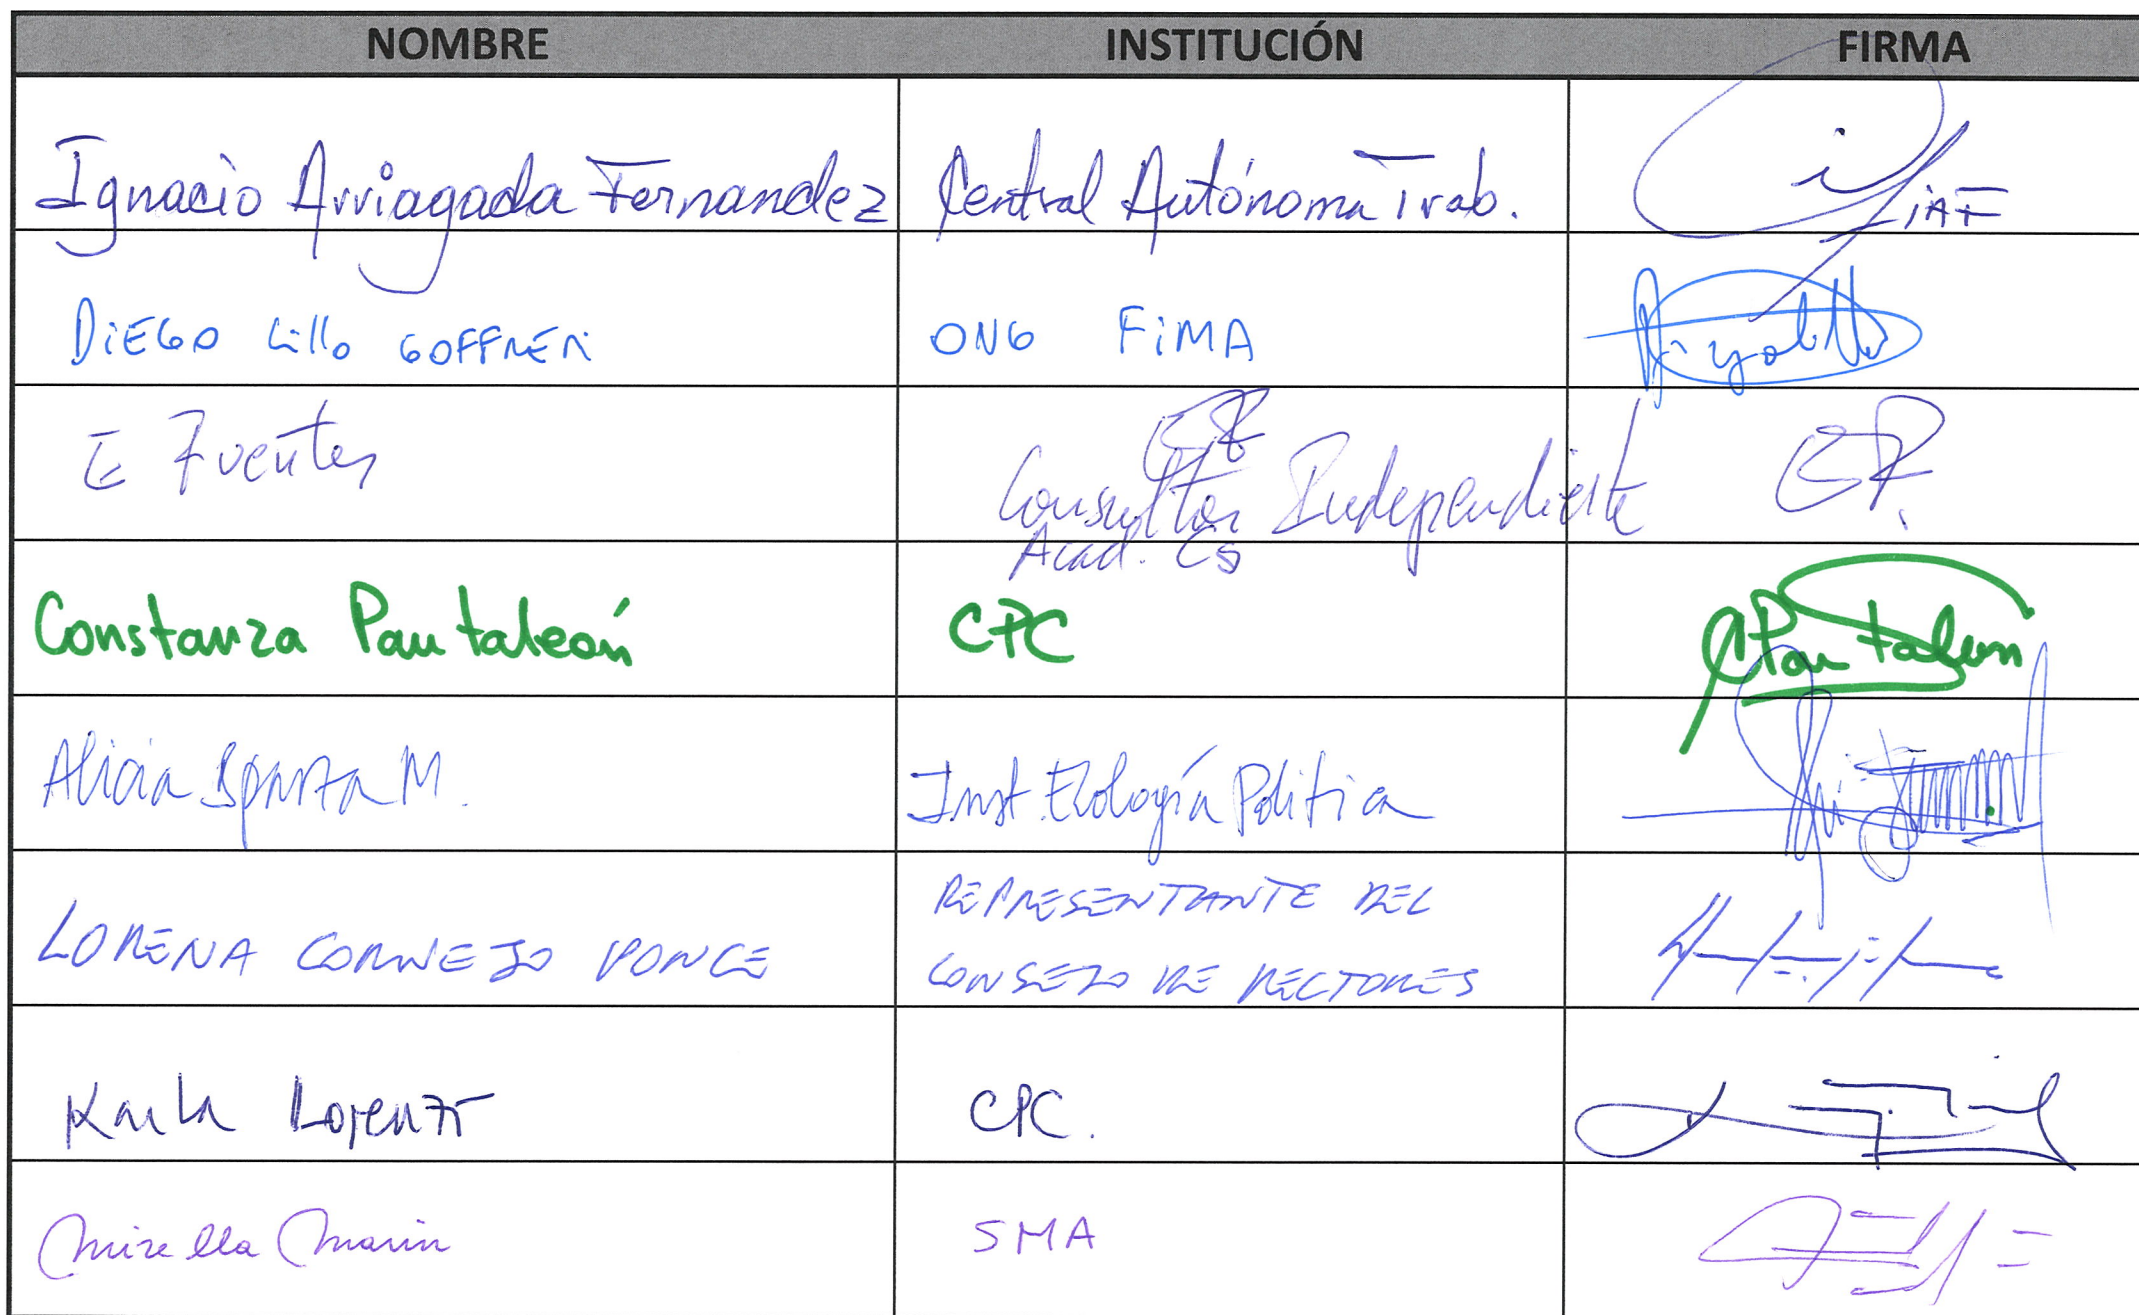 NOMBRE INSTITUCIÓN FIRMA
Ignacio Arriagada Fernandez Central Autónoma Trab. iAF
DiEGO Lillo GOFFRERi ONG FiMA
E Fuentes Consultor Independiente
Acad. Cs
Constanza Pantaleón CPC CPantaleon
Alicia M. Inst. Ecología Politica
REPRESENTANTE DEL
LORENA CORNEJO PONCE CONSEJO DE RECTORES
Karla Lorenzi CPC.
Mirella Marin SMA